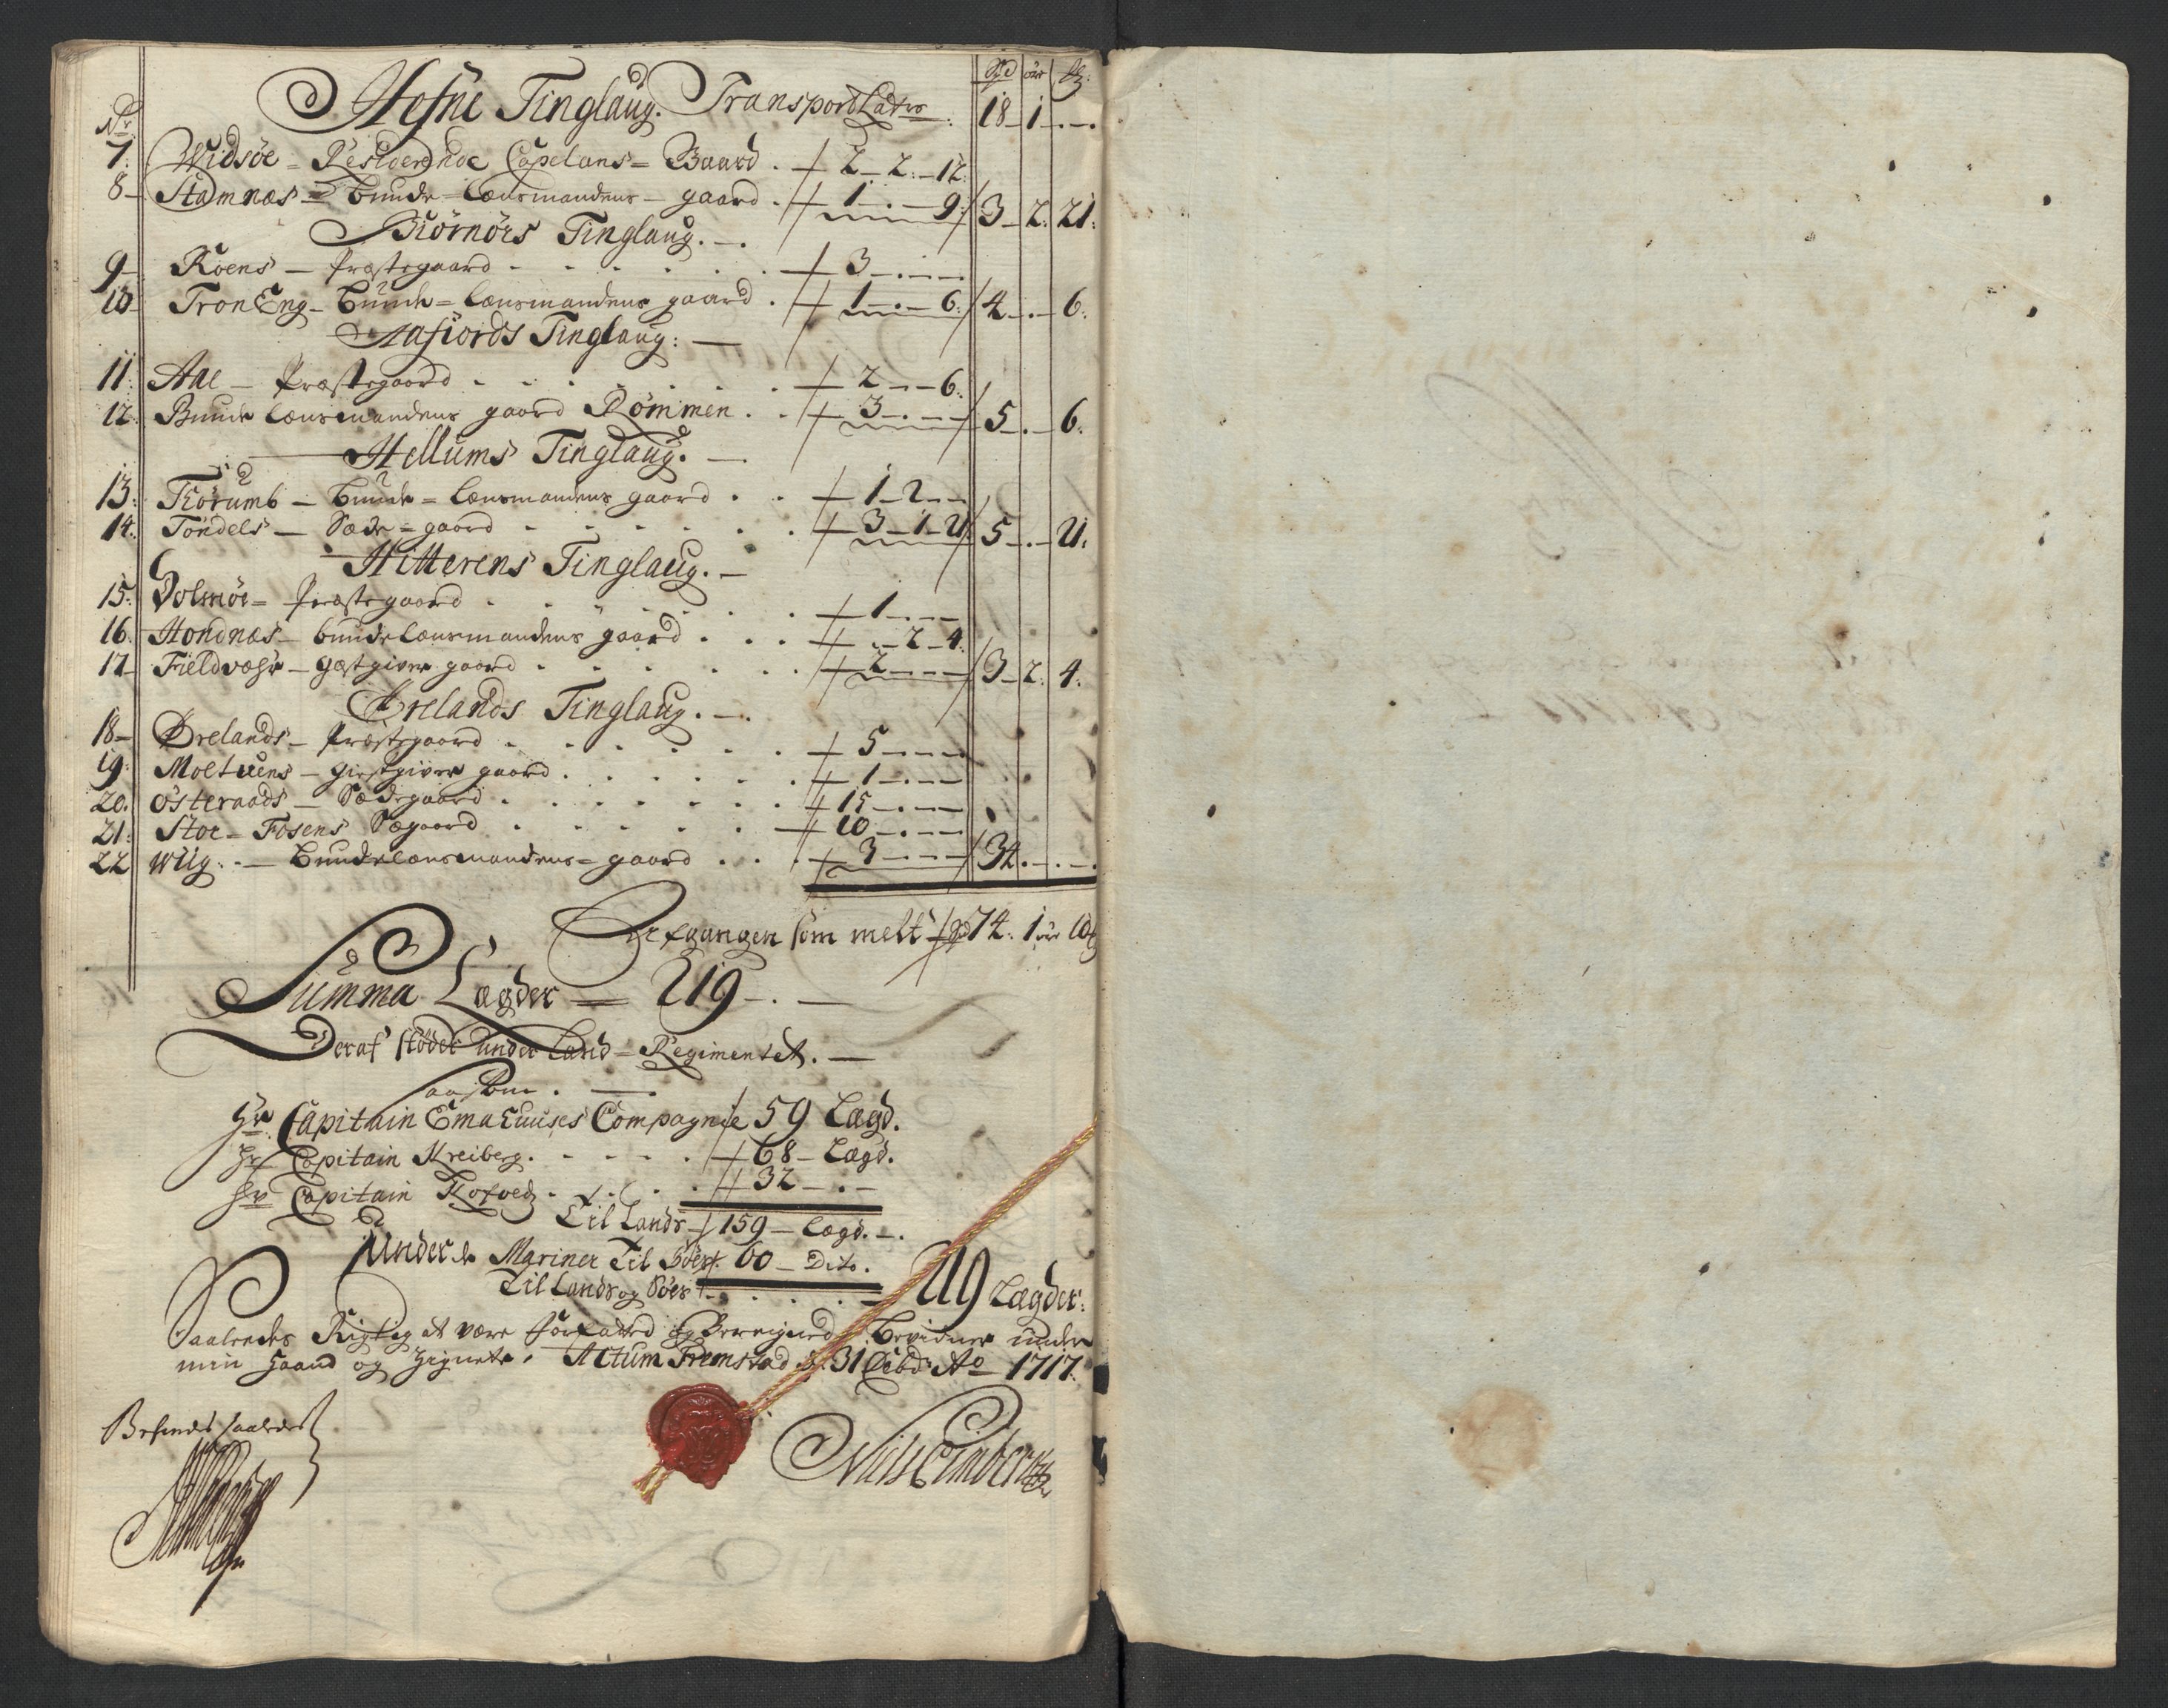 Spd ør
Hefne Tinglaug. Transport Latus 18 - 1 - . -
Nr
7: Widsöe - Residerende Capelans - Gaard . 2 - 2: - 12
8 - Stamnæs - bunde - lænsmandens - gaard . 1 - . - 9: 3 - 2: 21:
Biörnörs Tinglaug. - .
9 - Roens - Præstegaard - 3 - . - - .
10 - Tron Eng - bunde = lænsmandens gaard . 1 - . - 6: 4 - . - 6:
Aafiords Tinglaug: -
11: Aae - Præstegaard - 2 - - 6:
12: Bunde lænsmandens gaard Römmen . 3 - . - - 5 - . - 6:
Hellums Tinglaug. -
13: - bunde = lænsmandens gaard . 1 - 2 - -
14: Töndels - Sæde = gaard - 3 - 1 - 21 5 - . - 21:
Hitterens Tinglaug. -
15: Dolmöe = Præstegaard . 1 - . - -
16. Hondnæs - bundelænsmandens gaard . . . - . - 2 - 4:
17 - Fieldvær - giæstgiver gaard - 2 - - - - 3 - 2: 4:
Ørelands Tinglaug. - .
18 - Ørelands - Præstegaard - 5 - - - -
19: - giæstgiver gaard . 1 - . - -
20. österaads - Sædegaard . 15 - . - -
21: Stoe - Fosens Sægaard . 10 - . - -
22 Wiig: - bundelænsmandens = gaard . . . 3 - - - - 34 . - . - .
Afgangen som melt Spd 74: 1 ör 10
Summa Lægder = 219 - . -
Deraf støder under Land = Regimentet. -
Saasom . -
Hr. Capitain Compagnie 59 Lægd.
Hr Capitain Kreiberg. - - - - . 68 - Lægd.
Hr Capitain Kofoed . 32 - . -
Til Lands 159 - Lægd. - .
Under de Mariner Til Söes 60 - Dito.
Til Lands og Söes = 219 Lægder:
Saaledes Rigtig at være forfattet og Beregned, Bevidner under
min Haand og Zignete. Actum Fremstad d: 31 Decbr: Ao 1717.
Befindes saaledes
Niels